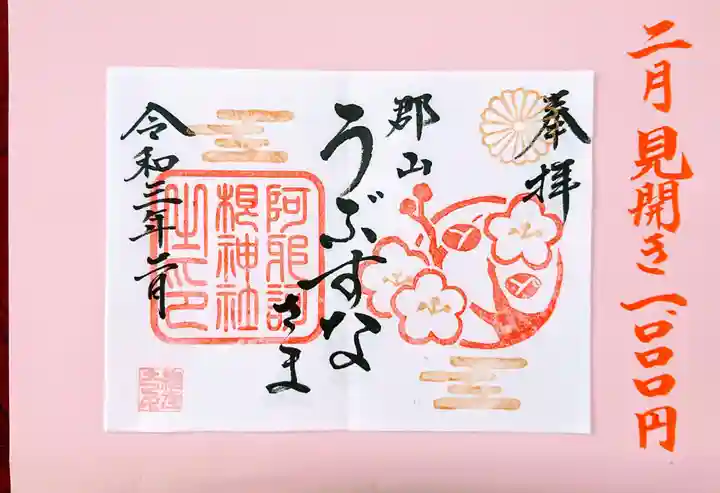 二月 見開き 一、〇〇〇円
奉拝
郡山
うぶすな
さま
阿邪訶
根神社
社印
令和三年二月